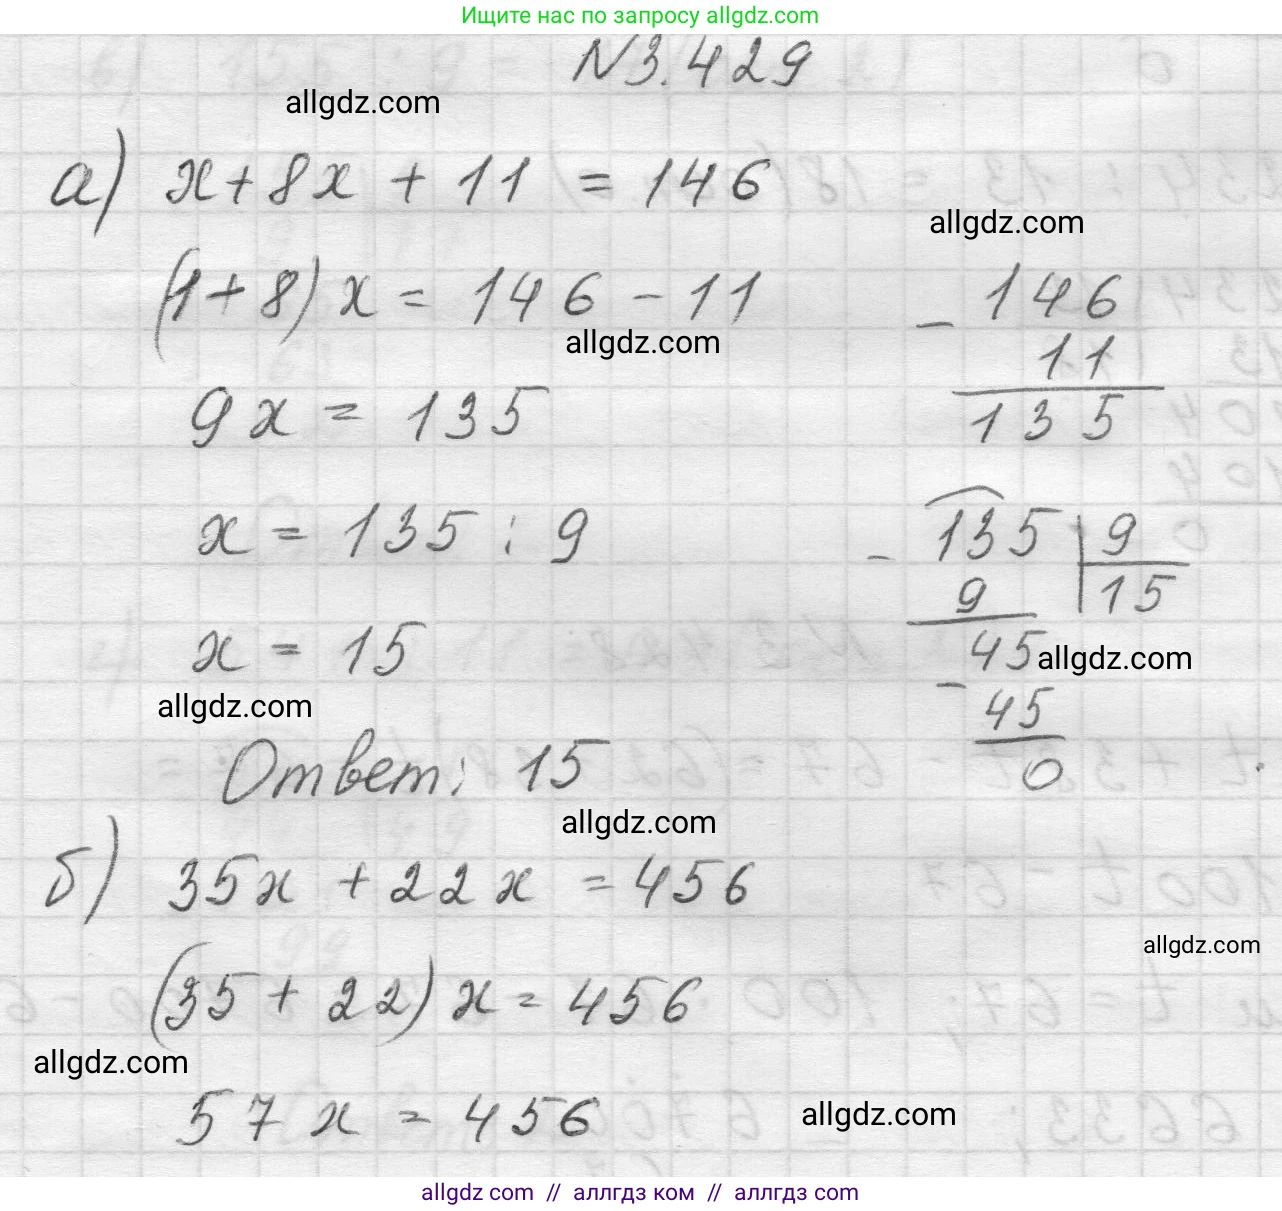 Ищите нас по запросу allgdz.com
N3.429
allgdz.com
а) x+8x + 11 = 146
allgdz.com
(1+8) x = 146 - 11
- 146
11
135
allgdz.com
9x = 135
x = 135 : 9
- 135 | 9
9 | 15
45
- 45
0
allgdz.com
x = 15
allgdz.com
Ответ: 15
allgdz.com
б) 35x + 22x = 456
allgdz.com
(35 + 22) x = 456
allgdz.com
57x = 456
allgdz.com
allgdz com // аллгдз ком // аллгдз com